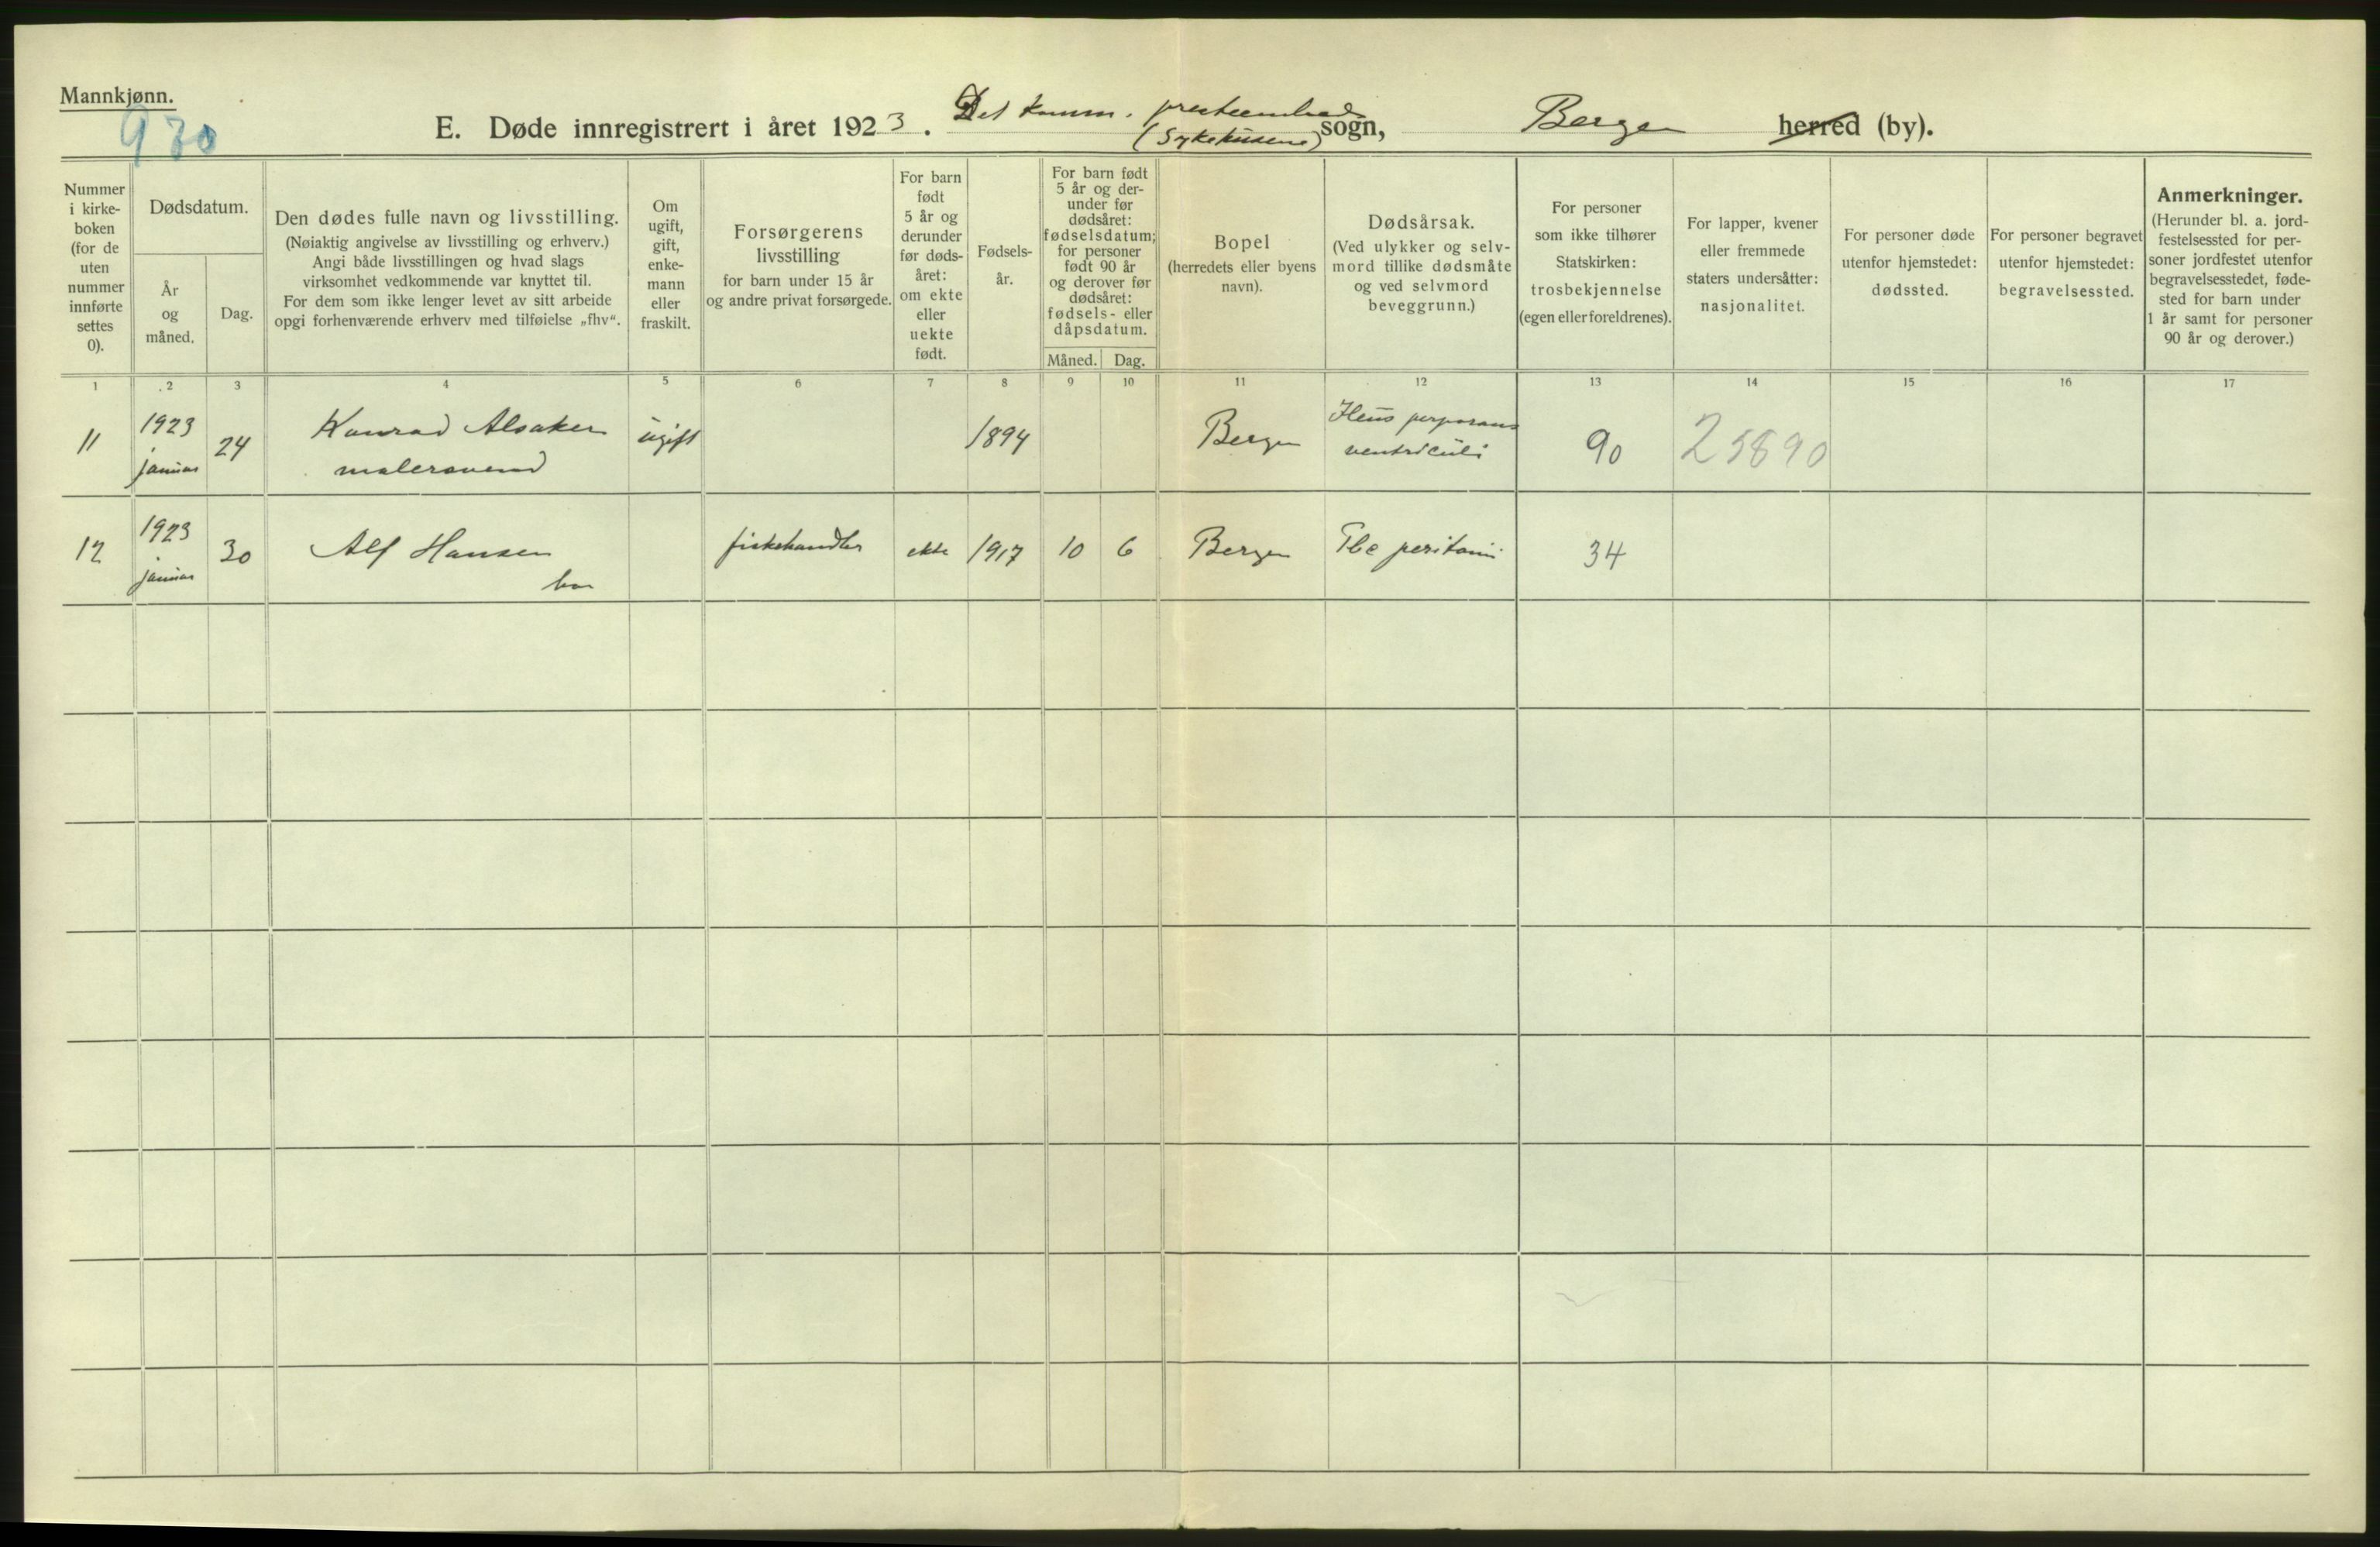 Mannkjønn.
930
E. Døde innregistrert i året 1923. Det komm. presteembede
(Sykehusene) sogn, Bergen herred (by).
Nummer
i kirke-
boken
(for de
uten
nummer
innførte
settes
0).
Dødsdatum.
År
og
måned.
Dag.
Den dødes fulle navn og livsstilling.
(Nøiaktig angivelse av livsstilling og erhverv.)
Angi både livsstillingen og hvad slags
virksomhet vedkommende var knyttet til.
For dem som ikke lenger levet av sitt arbeide
opgi forhenværende erhverv med tilføielse „fhv“.
Om
ugift,
gift,
enke-
mann
eller
fraskilt.
Forsørgerens
livsstilling
for barn under 15 år
og andre privat forsørgede.
For barn
født
5 år og
derunder
før døds-
året:
om ekte
eller
uekte
født.
Fødsels-
år.
For barn født
5 år og der-
under før
dødsåret:
fødselsdatum;
for personer
født 90 år
og derover før
dødsåret:
fødsels- eller
dåpsdatum.
Måned. Dag.
Bopel
(herredets eller byens
navn).
Dødsårsak.
(Ved ulykker og selv-
mord tillike dødsmåte
og ved selvmord
beveggrunn.)
For personer
som ikke tilhører
Statskirken:
trosbekjennelse
(egen eller foreldrenes).
For lapper, kvener
eller fremmede
staters undersåtter:
nasjonalitet.
For personer døde
utenfor hjemstedet:
dødssted.
For personer begravet
utenfor hjemstedet:
begravelsessted.
Anmerkninger.
(Herunder bl. a. jord-
festelsessted for per-
soner jordfestet utenfor
begravelsesstedet, føde-
sted for barn under
1 år samt for personer
90 år og derover.)
1 2 3 4 5 6 7 8 9 10 11 12 13 14 15 16 17
11 1923 januar 24 Konrad Alsaker ugift 1894 Bergen 90 25890
malersvend
ventriculi
12 1923 januar 30 Alf Hansen fiskehandler ekte 1917 10 6 Bergen Tbc peritonii 34